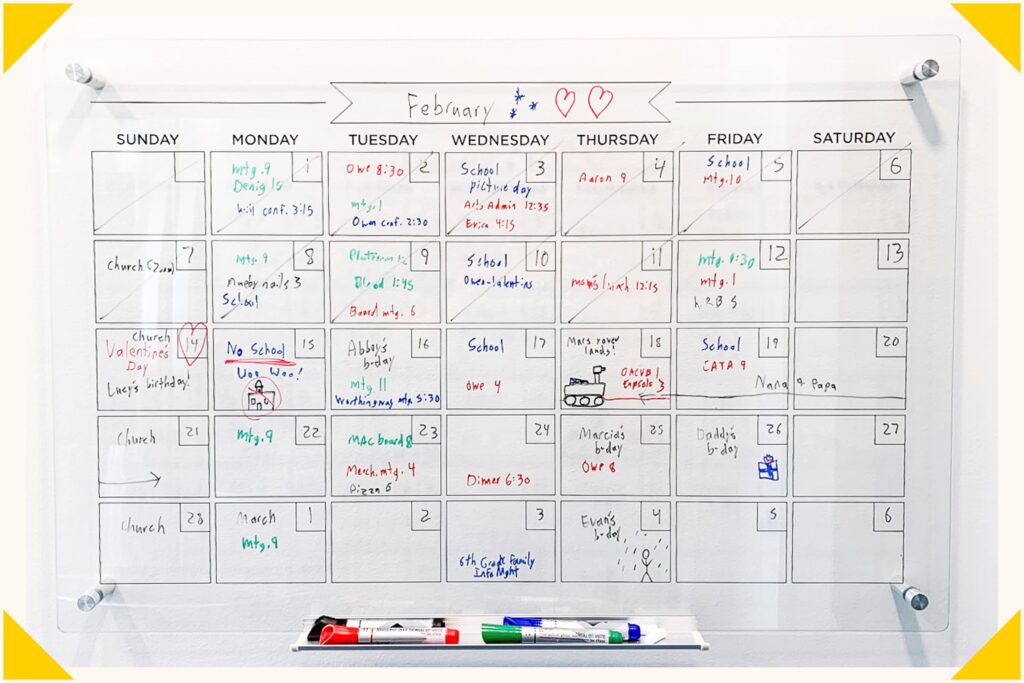 February
SUNDAY MONDAY TUESDAY WEDNESDAY THURSDAY FRIDAY SATURDAY
1
mtg. 9
conf. 3:15
2
Owe 8:30
mtg. 1
Owen conf. 2:30
3
School
picture day
Arts Admin 12:35
Erica 4:15
4
Aaron 9
5
School
mtg. 10
6
7
church (Zoom)
8
mtg. 9
nails 3
School
9
Platinum
Blood 1:45
Board mtg. 6
10
School
Owen-Valentins
11
mom's lunch 12:15
12
mtg. 9:30
mtg. 1
13
14
church
Valentine's
Day
Lucy's birthday!
15
No School
Woo Woo!
16
Abbey's
b-day
mtg 11
Worthingway mtg 5:30
17
School
Owe 4
18
Mars rover
lands!
OACVB 1
3
19
School
CATA 9
Nana & Papa
20
21
Church
22
mtg. 9
23
MAC board 8
Merch. mtg. 4
Pizza 6
24
Dinner 6:30
25
Marcia's
b-day
Owe 8
26
Daddy's
b-day
27
28
Church
1
March
mtg. 9
2
3
6th Grade Family
Info Night
4
Evan's
b-day
5
6